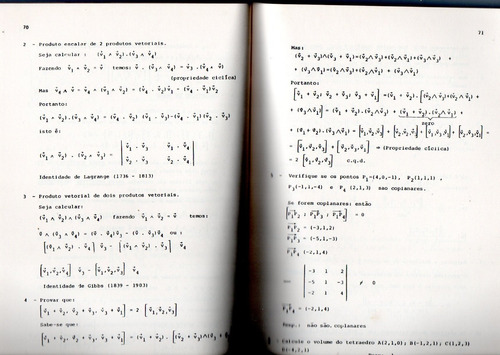 70
2 - Produto escalar de 2 produtos vetoriais.
Seja calcular : (v̄₁ ∧ v̄₂).(v̄₃ ∧ v̄₄)
Fazendo v̄₁ ∧ v̄₂ = v̄ temos: v̄ . (v̄₃ ∧ v̄₄) = v̄₃ .(v̄₄ ∧ v̄)
(propriedade cíclica)
Mas v̄₄ ∧ v̄ = v̄₄ ∧ (v̄₁ ∧ v̄₂) = (v̄₄ . v̄₂)v̄₁ - (v̄₄ . v̄₁)v̄₂
Portanto:
(v̄₁ ∧ v̄₂).(v̄₃ ∧ v̄₄) = (v̄₄ . v̄₂) (v̄₁ . v̄₃)-(v̄₄ . v̄₁)(v̄₂ . v̄₃)
isto é:
v̄₁ . v̄₃ v̄₁ . v̄₄
v̄₂ . v̄₃ v̄₂ . v̄₄
Identidade de Lagrange (1736 - 1813)
3 - Produto vetorial de dois produtos vetoriais.
Seja calcular:
(v̄₁ ∧ v̄₂) ∧ (v̄₃ ∧ v̄₄) fazendo v̄₁ ∧ v̄₂ = v̄ temos:
v̄ ∧ (v̄₃ ∧ v̄₄) = (v̄ . v̄₄)v̄₃ - (v̄ . v̄₃)v̄₄ ou :
[(v̄₁ ∧ v̄₂) . v̄₄] v̄₃ - [(v̄₁ ∧ v̄₂) . v̄₃] v̄₄
[v̄₁,v̄₂,v̄₄] v̄₃ - [v̄₁,v̄₂,v̄₃] v̄₄
Identidade de Gibbs (1839 - 1903)
4 - Provar que:
[v̄₁ + v̄₂, v̄₂ + v̄₃, v̄₃ + v̄₁] = 2 [v̄₁,v̄₂,v̄₃]
Sabe-se que:
[v̄₁ + v̄₂, v̄₂ + v̄₃, v̄₃ + v̄₁] = (v̄₁ + v̄₂).
71
Mas:
(v̄₂ + v̄₃)∧(v̄₃ + v̄₁)=(v̄₂∧v̄₃)+(v̄₂∧v̄₁)+(v̄₃∧v̄₃) +
+ (v̄₃∧v̄₁)=(v̄₂∧v̄₃)+(v̄₂∧v̄₁) + (v̄₃∧v̄₁)
Portanto:
[v̄₁ + v̄₂; v̄₂ + v̄₃; v̄₃ + v̄₁] =(v̄₁ + v̄₂).[(v̄₂∧v̄₃)+(v̄₂∧v̄₁) +
+ (v̄₃∧v̄₁)] = (v̄₁ + v̄₂).(v̄₂∧v̄₃) + (v̄₁ + v̄₂).(v̄₂∧v̄₁) +
zero
+ (v̄₁ + v̄₂).(v̄₃∧v̄₁)
= [v̄₁,v̄₂,v̄₃] + [v̄₂,v̄₃,v̄₁] = (Propriedade cíclica)
= 2 [v̄₁,v̄₂,v̄₃] c.q.d.
- Verifique se os pontos P₁=(4,0,-1), P₂(1,1,1) ,
P₃(-1,-1,-4) e P₄ (2,1,3) são coplanares.
Se forem coplanares: então
[P₁P₂ ; P₁P₃ ; P₁P₄] = 0
P₁P₂ = (-3,1,2)
P₁P₃ = (-5,-1,-3)
P₁P₄ (-2,1,4)
-3 1 2
-5 -1 -3 ≠ 0
-2 1 4
P₁P₄ = (-2,1,4)
Resp.: não são coplanares
- Calcule o volume do tetraedro A(2,1,0); B(-1,2,1); C(1,2,3)